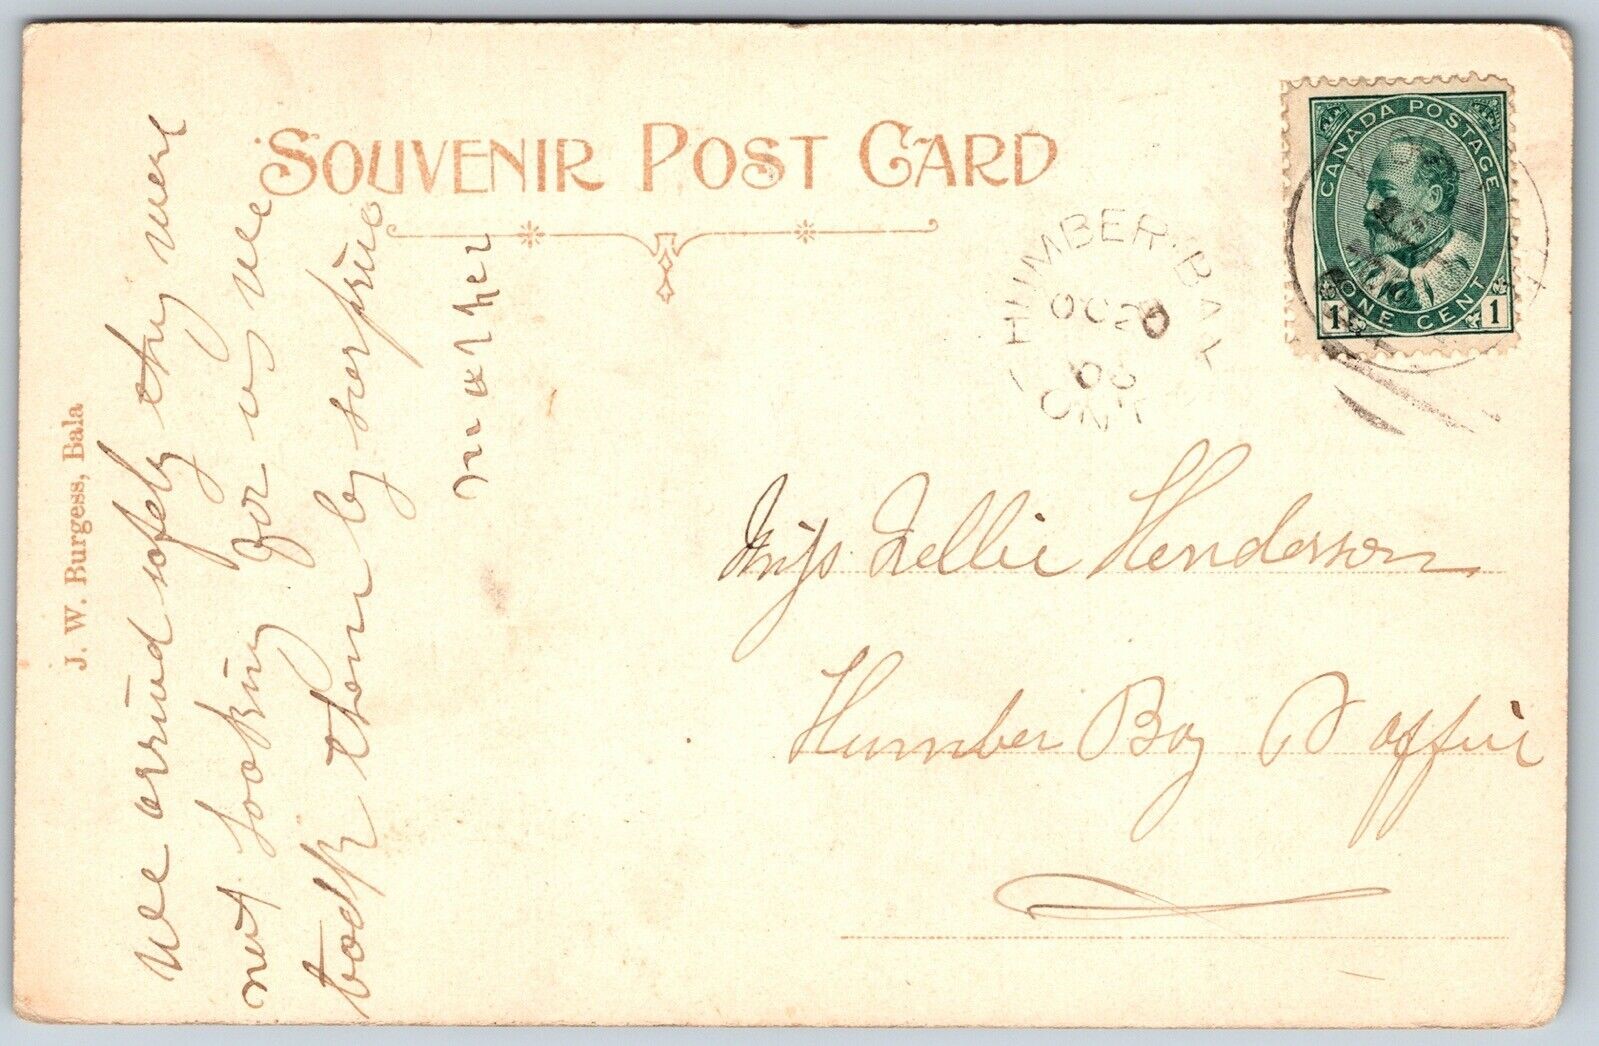 SOUVENIR POST CARD
CANADA POSTAGE
ONE CENT
1 1
HUMBER BAY
OC 20
08
ONT
J. W. Burgess, Bala
We arrived safely they were
not looking for us we
took them by surprise
mother
Miss Nellie Henderson
Humber Bay P office